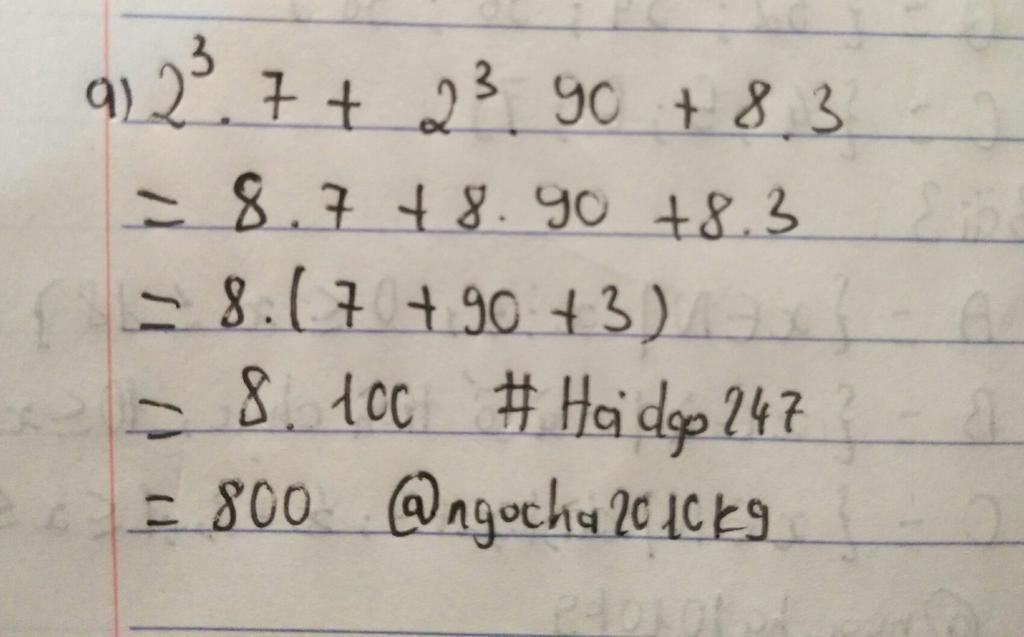 a) 2³. 7 + 2³. 90 + 8.3
= 8.7 + 8. 90 + 8.3
= 8.(7 + 90 + 3)
= 8. 100 # Haidgo247
= 800 @ngocha2010kg